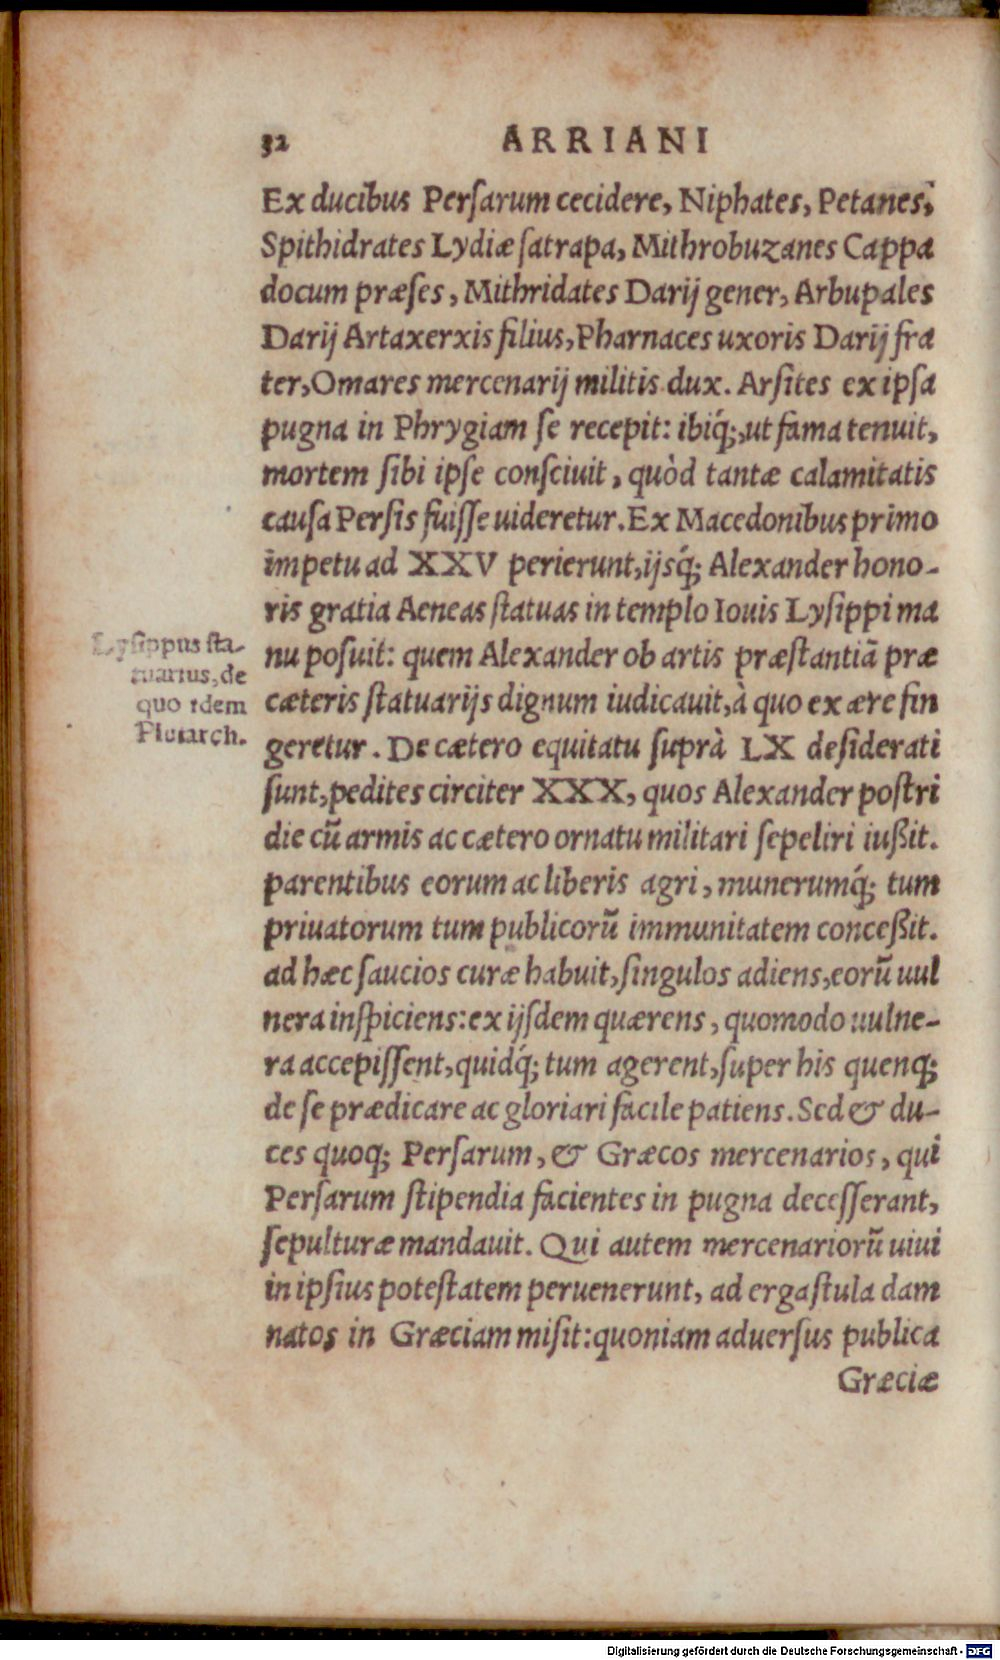 32 ARRIANI
Ex ducibus Perſarum cecidere, Niphates, Petanes,
Spithidrates Lydiæ ſatrapa, Mithrobuzanes Cappa
docum præſes, Mithridates Darij gener, Arbupales
Darij Artaxerxis filius, Pharnaces uxoris Darij fra
ter, Omares mercenarij militis dux. Arſites ex ipſa
pugna in Phrygiam ſe recepit: ibiq́;, ut fama tenuit,
mortem ſibi ipſe conſciuit, quòd tantæ calamitatis
cauſa Perſis fuiſſe uideretur. Ex Macedonibus primo
impetu ad XXV perierunt, ijsq́; Alexander hono-
ris gratia Aeneas ſtatuas in templo Iouis Lyſippi ma
nu poſuit: quem Alexander ob artis præſtantiã præ
cæteris ſtatuarijs dignum iudicauit, à quo ex ære fin
geretur. De cætero equitatu ſuprà LX deſiderati
ſunt, pedites circiter XXX, quos Alexander poſtri
die cũ armis ac cætero ornatu militari ſepeliri iußit.
parentibus eorum ac liberis agri, munerumq́; tum
priuatorum tum publicorũ immunitatem conceßit.
ad hæc ſaucios curæ habuit, ſingulos adiens, eorũ uul
nera inſpiciens: ex ijſdem quærens, quomodo uulne-
ra accepiſſent, quidq́; tum agerent, ſuper his quenq;
de ſe prædicare ac gloriari facile patiens. Sed & du-
ces quoq; Perſarum, & Græcos mercenarios, qui
Perſarum ſtipendia facientes in pugna deceſſerant,
ſepulturæ mandauit. Qui autem mercenariorũ uiui
in ipſius poteſtatem peruenerunt, ad ergaſtula dam
natos in Græciam miſit: quoniam aduerſus publica
Græciæ
Lyſippus ſta-
tuarius, de
quo idem
Plutarch.
Digitalisierung gefördert durch die Deutsche Forschungsgemeinschaft - DFG